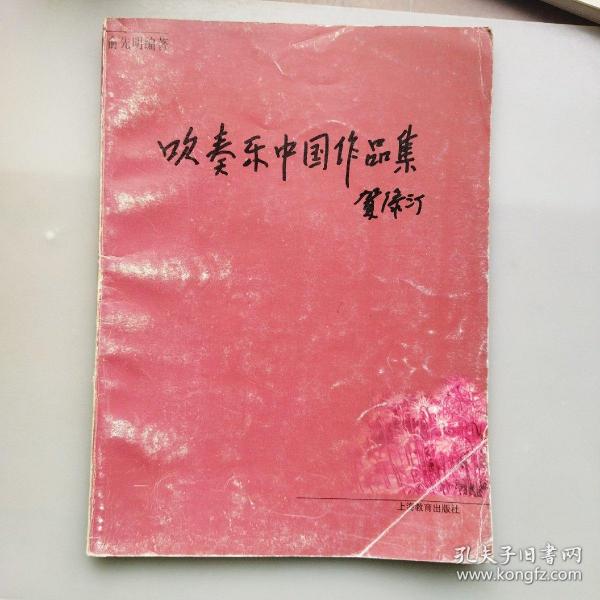 俞先明编著
吹奏乐中国作品集
贺绿汀
上海教育出版社
孔夫子旧书网
www.kongfz.com